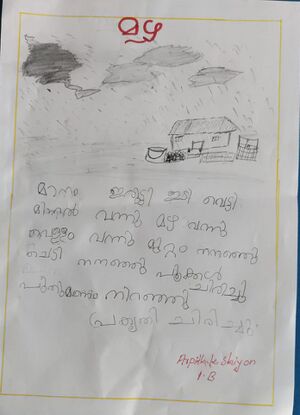 മഴ
മാനം ഇരുട്ടി ഇടി വെട്ടി
മിന്നൽ വന്നു മഴ വന്നു
വെള്ളം വന്നു മുറ്റം നനഞ്ഞു
ചെടി നനഞ്ഞു പൂക്കൾ ചിരിച്ചു
പുതുമണം നിറഞ്ഞു
പ്രകൃതി ചിരിച്ചു
1-B